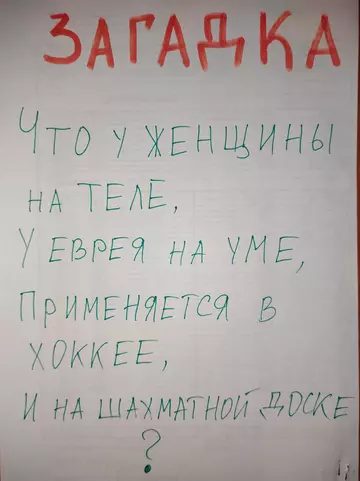 ЗАГАДКА
ЧТО У ЖЕНЩИНЫ
НА ТЕЛЕ,
У ЕВРЕЯ НА УМЕ,
ПРИМЕНЯЕТСЯ В
ХОККЕЕ,
И НА ШАХМАТНОЙ ДОСКЕ
?